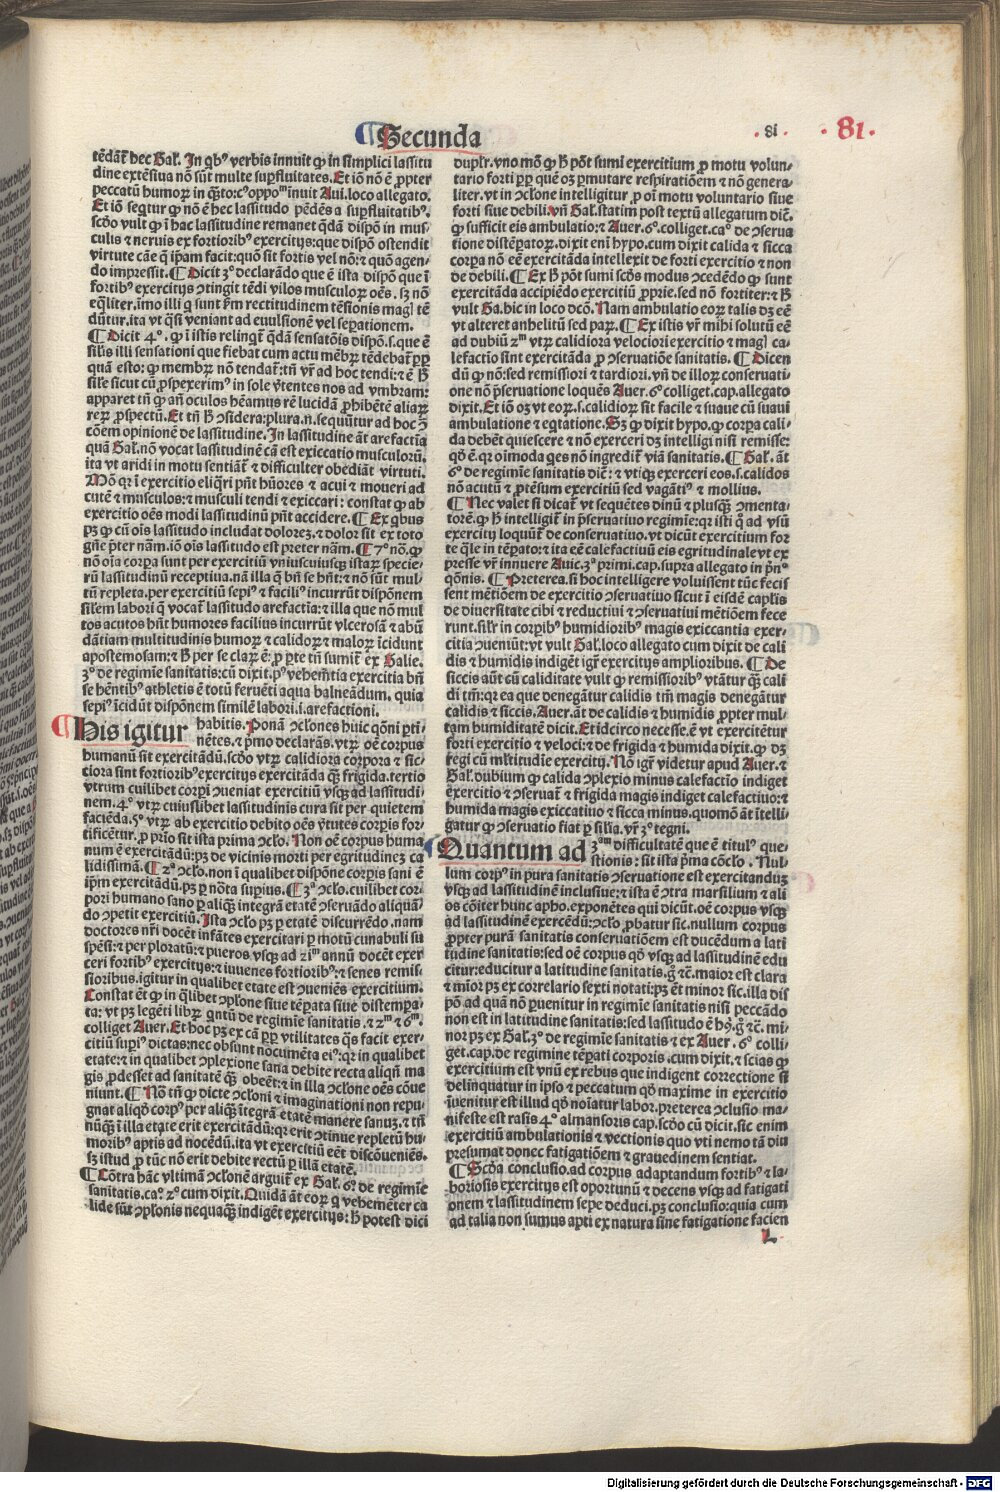 Secunda
.81.
.81.
tēdāt̄ hec Gal. In qb⁹ verbis innuit ꝙ in simplici lassitu
dine extēsiua nō sūt multe supfluitates. Et iō nō ē ꝓpter
peccatū humoꝝ in
inuit Aui. loco allegato.
Et iō seqtur ꝙ nō ē hec lassitudo pēdēs a supfluitatib⁹.
scdo vult ꝙ ī hac lassitudine remanet qdā dispō in mus-
culis & neruis ex fortiorib⁹ exercitijs: que dispō ostendit
virtute cāe q̄ ip̄am facit: quō sit fortis vel nō: & quō agen-
do impressit. ¶ Dicit 3° declarādo que ē ista dispō que ī
fortib⁹ exercitijs ꝯtingit tēdi vilos musculoꝝ oēs. sꝫ nō
eq̄liter. imo illi q̄ sunt
rectitudinem tēsionis magꝭ tē
dūtur. ita vt q̄si veniant ad euulsionē vel sepationem.
¶ Dicit 4°. ꝙ ī istis relinqt̄ q̄dā sensatōis dispō. s. que ē
silis illi sensationi que fiebat cum actu mēbꝝ tēdebat̄
quā esto: ꝙ membꝝ nō tendat̄: tn̄ vr̄ ad hoc tendi: & ē
sile sicut cū ꝓspexerim⁹ in sole v̄tentes nos ad vmbram:
apparet tn̄ ꝙ an̄ oculos hēamus rē lucidā ꝓhibētē aliaꝝ
reꝝ ꝓspectū. Et tn̄
ꝯsidera: plura. n. sequūtur ad hoc ꝯ
cōem opinionē de lassitudine. In lassitudine āt arefactīa
quā Gal. nō vocat lassitudinē cā est exiccatio musculorū.
ita vt aridi in motu sentiāt̄ & difficulter obediāt virtuti.
Mō qꝛ ī exercitio eliq̄ri pn̄t hūores & acui & moueri ad
cutē & musculos: & musculi tendi & exiccari: constat ꝙ ab
exercitio oēs modi lassitudinū pn̄t accidere. ¶ Ex qbus
pꝫ ꝙ cū oīs lassitudo includat doloreꝫ. & dolor sit ex toto
gn̄e pter nām. iō oīs lassitudo est preter nām. ¶ 7° nō. ꝙ
nō oīa corpa sunt per exercitiū vniuscuiusqꝫ istaꝝ specie-
rū lassitudinū receptiua. nā illa q̄ bn̄ se hn̄t: & nō sūt mul-
tū repleta. per exercitiū sepi⁹ & facili⁹ incurrūt dispōnem
silem labori q̄ vocat̄ lassitudo arefactīa: & illa que nō mul
tos acutos hn̄t humores facilius incurrūt vlcerosā & abū
dātiam multitudinis humoꝝ & calidoꝝ & maloꝝ īcidunt
apostemosam: &
per se claꝝ ē: ꝓ pte tn̄ sumit̄ ex Galie.
3° de regimīe sanitatis: cū dixit. p⁹ vehemētia exercitia bn̄
se hētib⁹ athletis ē totū ferueti aqua balneādum. quia
sepi⁹ īcidūt dispōnem similē labori. i. arefactioni.
¶ His igitur habitis. Ponā ꝯclones huic qōni pti-
nētes. & pmo declarās. vtꝝ oē corpus
humanū sit exercitādū. scdo vtꝝ calidiora corpora & sic-
ciora sint fortiorib⁹ exercitijs exercitāda q̄ꝫ frigida. tertio
vtrum cuilibet corpi ꝯueniat exercitiū vsqꝫ ad lassitudi-
nem. 4° vtꝝ cuiuslibet lassitudinis cura sit per quietem
faciēda. 5° vtꝝ ab exercitio debito oēs v̄tutes corpis for-
tificētur. ꝓ prīo sit ista prima ꝯclo. Non oē corpus huma
num ē exercitādū: pꝫ de vicinis morti per egritudineꝫ ca
lidissimā. ¶ 2ª ꝯclo. non ī qualibet dispōne corpis sani ē
ip̄m exercitādū. pꝫ ꝑ nōta supius. ¶ 3ª ꝯclo. cuilibet cor-
pori humano sano ꝑ aliqꝫ integrā etatē ꝯseruādo aliquā-
do ꝯpetit exercitiū. Ista ꝯclo pꝫ ꝑ etatē discurrēdo. nam
doctores nr̄i docēt infātes exercitari ꝑ motū cunabuli su
spēsi: & per ploratū: & pueros vsqꝫ ad 21ᵐ annū docēt exer
ceri fortib⁹ exercitijs: & iuuenes fortiorib⁹: & senes remis-
sioribus. igitur in qualibet etate est ꝯueniēs exercitium.
Constat ēt ꝙ in q̄libet ꝯplone siue tēpata siue distempa-
ta: vt pꝫ legēti libꝝ qntū de regimīe sanitatis. & 2ᵐ & 6ᵐ.
colliget Auer. Et hoc pꝫ ex cā ꝑꝑ vtilitates q̄s facit exer-
citiū supi⁹ dictas: nec obsunt nocumēta ei⁹: qꝛ in qualibet
etate: & in qualibet ꝯplexione sana debite recta aliqn̄ ma
gis ꝓdesset ad sanitatē q̄ꝫ obeēt: & in illa ꝯclone oēs cōue
niunt. ¶ Nō tn̄ ꝙ dicte ꝯcloni & imaginationi non repu-
gnat aliqd corp⁹ per aliqꝫ itegrā etatē manere sanuꝫ. & tn̄
nūqꝫ ī illa etate erit exercitādū: qꝛ erit ꝯtinue repletū hu-
morib⁹ aptis ad nocēdū. ita vt exercitiū eēt discōueniēs.
sꝫ istud ꝓ tūc nō erit debite rectū ꝑ illā etatē.
¶ Cōtra hāc vltimā ꝯclonē arguit̄ ex Gal. 6° de regimīe
sanitatis. ca° 2° cum dixit. Quidā āt eoꝝ q̄ vehemēter ca
lide sūt ꝯplonis nequaqꝫ indigēt exercitijs:
potest dici
duplr̄. vno mō ꝙ
pōt sumi exercitium ꝓ motu volun-
tario forti ꝑꝑ quē oꝫ ꝑmutare respiratiōem & nō genera-
liter. vt in ꝯclone intelligitur ꝓ oī motu voluntario siue
forti siue debili. vn̄ Gal. statim post textū allegatum dic̄.
ꝙ sufficit eis ambulatio: & Auer. 6°. colliget. ca° de ꝯserua
tione distēpatoꝝ. dixit eni hypo. cum dixit calida & sicca
corpa nō eē exercitāda intellexit de forti exercitio & non
de debili. ¶ Ex
pōt sumi scds modus ꝯcedēdo ꝙ sunt
exercitāda accipiēdo exercitiū ꝓprie. sed nō fortiter: &
vult Ga. hic in loco dcō. Nam ambulatio eoꝝ talis dꝫ eē
vt alteret anhelitū sed paꝝ. ¶ Ex istis vr̄ mihi solutū eē
ad dubiū 2ᵐ vtꝝ calidiora velociori exercitio & magꝭ ca-
lefactio sint exercitāda ꝓ ꝯseruatiōe sanitatis. ¶ Dicen
dū ꝙ nō: sed remissiori & tardiori. vn̄ de illoꝝ conseruati-
one nō pseruatione loquēs Auer. 6° colliget. cap. allegato
dixit. Et iō oꝫ vt eoꝝ. s. calidioꝝ sit facile & suaue cū suaui
ambulatione & eqtatione. Sꝫ ꝙ dixit hypo. ꝙ corpa cali-
da debēt quiescere & nō exerceri dꝫ intelligi nisi remisse:
qd ē. qꝛ oimoda qes nō ingredit̄ viā sanitatis. ¶ Gal. āt
6° de regimīe sanitatis dic̄: & vtiqꝫ exerceri eos. s. calidos
nō acutū & ꝓtēsum exercitiū sed vagāti⁹ & mollius.
¶ Nec valet si dicat̄ vt sequētes dinū & plusqꝫ ꝯmenta-
torē. ꝙ
intelligit̄ in pseruatiuo regimīe: qꝛ isti q̄ ad vsū
exercitij loquūt̄ de conseruatiuo. vt dicūt exercitium for
te q̄le in tēpato: & ita eē calefactiuū eis egritudinale vt ex
presse vr̄ innuere Auic. 3° primi. cap. supra allegato in pn°
qōnis. ¶ Preterea. si hoc intelligere voluissent tūc fecis
sent mētiōem de exercitio ꝯseruatiuo sicut ī eisdē caplis
de diuersitate cibi & reductiui & ꝯseruatiui mētiōem fece
runt. silr̄ in corpib⁹ humidiorib⁹ magis exiccantia exer-
citia ꝯueniūt: vt vult Gal. loco allegato cum dixit de cali
dis & humidis indigēt igr̄ exercitijs amplioribus. ¶ De
siccis aūt cū caliditate vult ꝙ remissiorib⁹ vtātur q̄ꝫ cali
di tm̄: qꝛ ea que denegātur calidis tm̄ magis denegātur
calidis & siccis. Auer. āt de calidis & humidis ꝓpter mul-
tam humiditatē dicit. Et idcirco necesse. ē vt exercitētur
forti exercitio & veloci: & de frigida & humida dixit. ꝙ dꝫ
regi cū mltitudie exercitij. Nō igr̄ videtur apud Auer. &
Gal. dubium ꝙ calida ꝯplexio minus calefactio indiget
exercitio & ꝯseruat̄ & frigida magis indiget calefactiuo: &
humida magis exiccatiuo & sicca minus. quomō āt itelli-
gatur ꝙ ꝯseruatio fiat ꝑ silia. vr̄ 3° tegni.
¶ Quantum ad 3ᵃᵐ difficultatē que ē titul⁹ que-
stionis: sit ista pma cōclo. Nul-
lum corp⁹ in pura sanitatis ꝯseruatione est exercitanduꝫ
vsqꝫ ad lassitudinē inclusiue: & ista ē ꝯtra marsilium & ali
os cōiter hunc apho. exponētes qui dicūt. oē corpus vsqꝫ
ad lassitudinē exercēdū: ꝯclo ꝓbatur sic. nullum corpus
ꝓpter purā sanitatis conseruatiōem est ducēdum a lati
tudine sanitatis: sed oē corpus qd vsqꝫ ad lassitudinē edu
citur: educitur a latitudine sanitatis. g̊ &c̄. maior est clara
& mīor pꝫ ex correlario sexti notati: pꝫ ēt minor sic. illa dis
pō ad quā nō puenitur in regimīe sanitatis nisi peccādo
non est in latitudine sanitatis: sed lassitudo ē h⁹. g̊ &c̄. mi-
nor pꝫ ex Gal. 3° de regimīe sanitatis & ex Auer. 6° colli-
get. cap. de regimine tēpati corporis. cum dixit. & scias ꝙ
exercitium est vnū ex rebus que indigent correctione si
delinquatur in ipso & peccatum qd maxime in exercitio
iuenitur est illud qd noiatur labor. preterea ꝯclusio ma-
nifeste est rasis 4° almansoris cap. scdo cū dicit. sic enim
exercitiū ambulationis & vectionis quo vti nemo tā diu
presumat donec fatigatiōem & grauedinem sentiat.
¶ Scda conclusio. ad corpus adaptandum fortib⁹ & la-
boriosis exercitijs est oportunū & decens vsqꝫ ad fatigati
onem & lassitudinem sepe deduci. pꝫ conclusio: quia cum
ad talia non sumus apti ex natura sine fatigatione facien
L
Digitalisierung gefördert durch die Deutsche Forschungsgemeinschaft - DFG